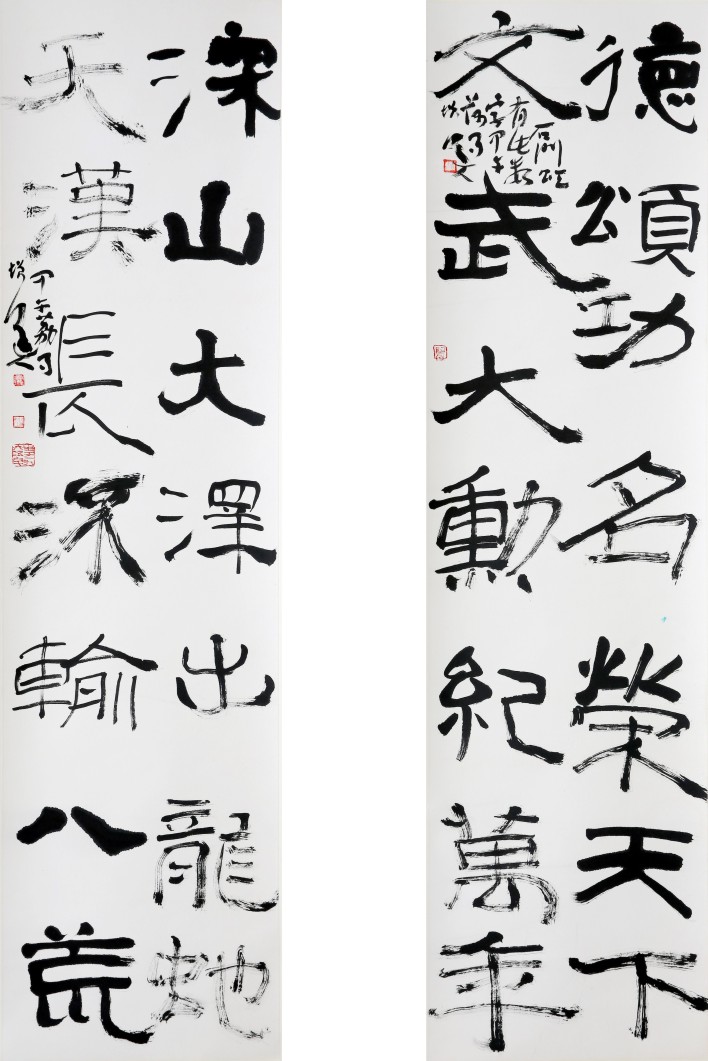 德頌功名榮天下
文武大勳紀萬年
深山大澤出龍蛇
天漢長深輸八荒
甲午